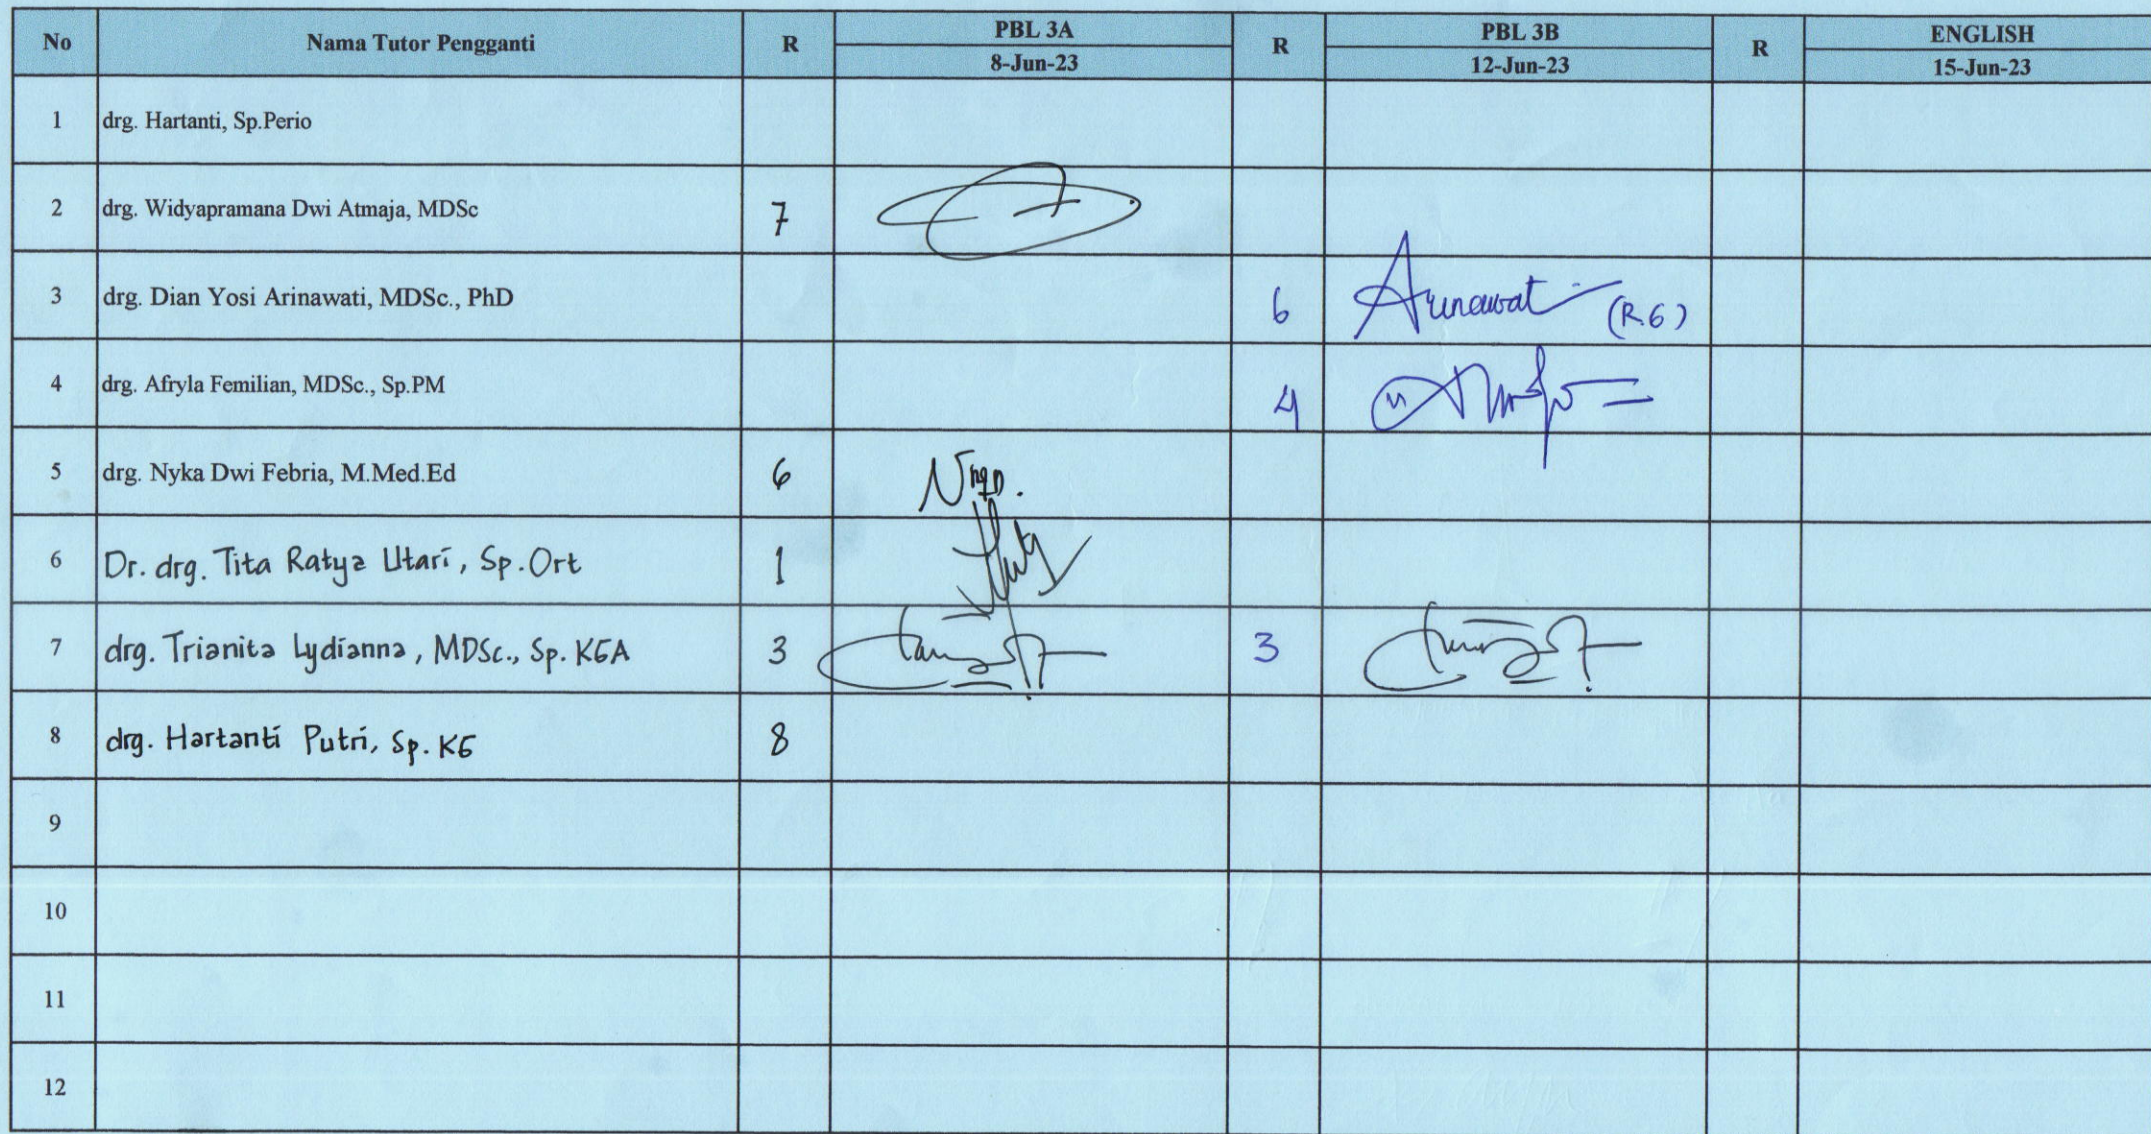 No Nama Tutor Pengganti R PBL 3A R PBL 3B R ENGLISH
8-Jun-23 12-Jun-23 15-Jun-23
1 drg. Hartanti, Sp.Perio
2 drg. Widyapramana Dwi Atmaja, MDSc 7
3 drg. Dian Yosi Arinawati, MDSc., PhD 6 (R.6)
4 drg. Afryla Femilian, MDSc., Sp.PM 4
5 drg. Nyka Dwi Febria, M.Med.Ed 6
6 Dr. drg. Tita Ratya Utari, Sp.Ort 1
7 drg. Trianita Lydianna, MDSc., Sp. KGA 3 3
8 drg. Hartanti Putri, Sp. KG 8
9
10
11
12